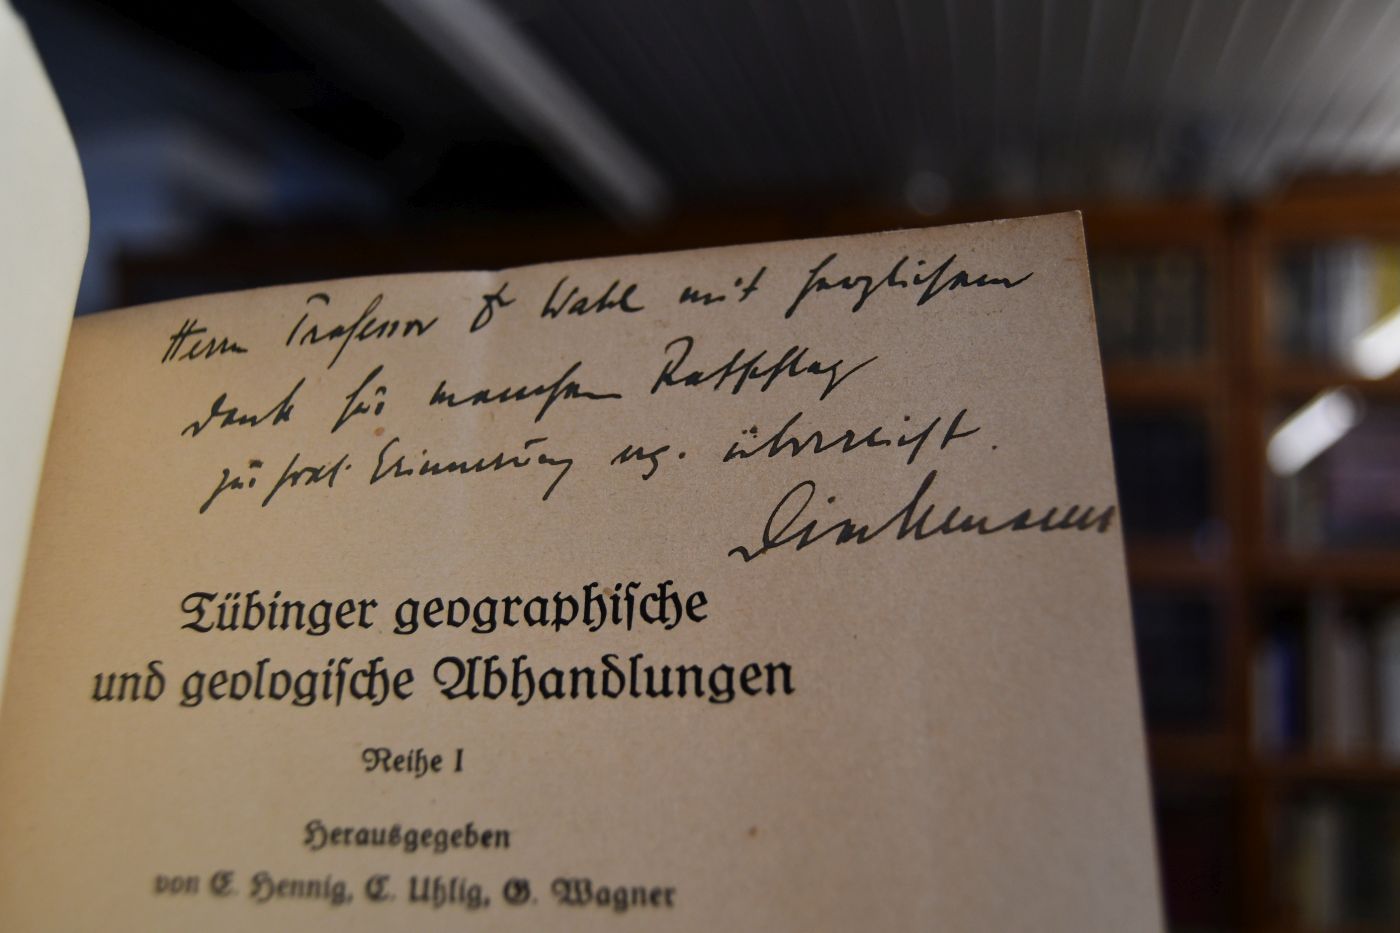 Herrn Professor Dr Wahl mit herzlichem
Dank für manchen Ratschlag
zur frdl. Erinnerung erg. überreicht.
Dinkelmann
Tübinger geographiſche
und geologiſche Abhandlungen
Reihe I
Herausgegeben
von E. Hennig, C. Uhlig, G. Wagner